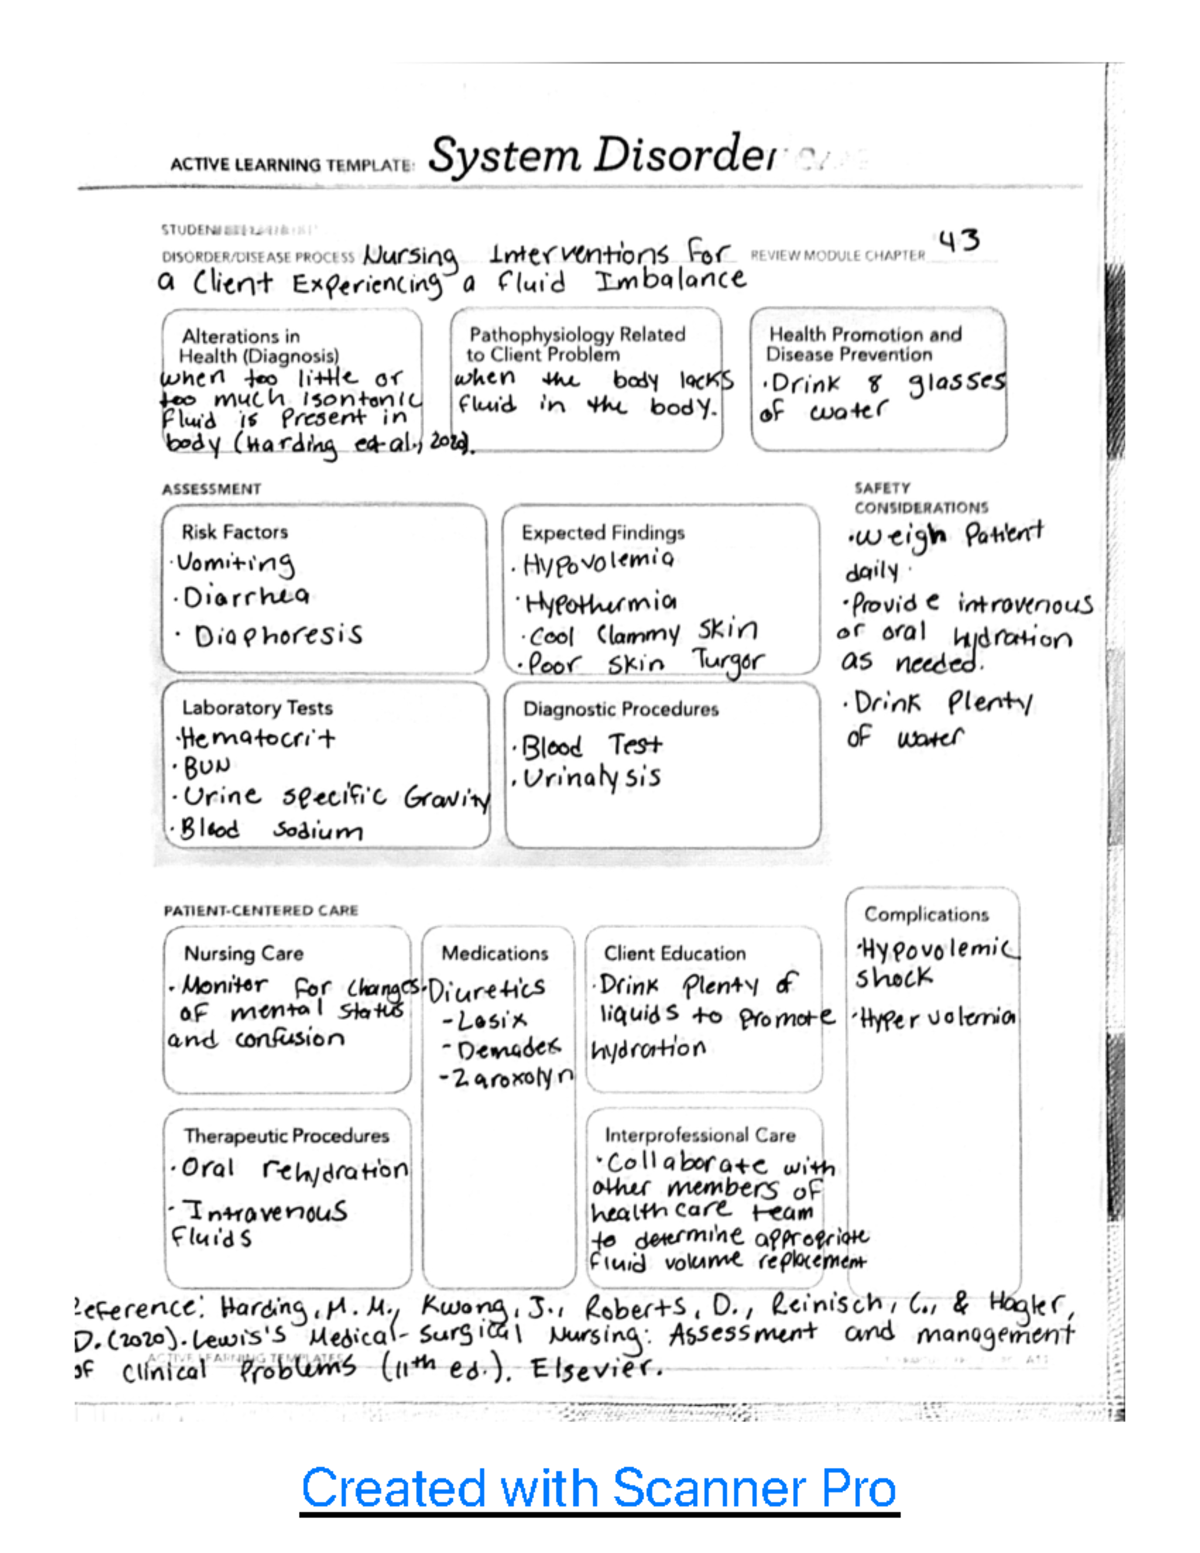 ACTIVE LEARNING TEMPLATE: System Disorder
STUDENT
DISORDER/DISEASE PROCESS Nursing Interventions for
a Client Experiencing a fluid Imbalance
REVIEW MODULE CHAPTER 43
Alterations in
Health (Diagnosis)
when too little or
too much isontonic
fluid is present in
body (Harding et al., 2020).
Pathophysiology Related
to Client Problem
when the body lacks
fluid in the body.
Health Promotion and
Disease Prevention
· Drink 8 glasses
of water
ASSESSMENT
Risk Factors
· Vomiting
· Diarrhea
· Diaphoresis
Expected Findings
· Hypovolemia
· Hypothermia
· Cool Clammy Skin
· Poor Skin Turgor
SAFETY
CONSIDERATIONS
· weigh Patient
daily.
· Provide intravenous
or oral hydration
as needed.
· Drink Plenty
of water
Laboratory Tests
· Hematocrit
· BUN
· Urine specific Gravity
· Blood sodium
Diagnostic Procedures
· Blood Test
· Urinalysis
PATIENT-CENTERED CARE
Nursing Care
· Monitor for changes
of mental status
and confusion
Medications
· Diuretics
- Lasix
- Demadex
- Zaroxolyn
Client Education
· Drink Plenty of
liquids to promote
hydration
Complications
· Hypovolemic
shock
· Hypervolemia
Therapeutic Procedures
· Oral rehydration
· Intravenous
fluids
Interprofessional Care
· Collaborate with
other members of
healthcare team
to determine appropriate
fluid volume replacement
Reference: Harding, M. M., Kwong, J., Roberts, D., Reinisch, C., & Hagler,
D. (2020). Lewis's Medical-Surgical Nursing: Assessment and management
of Clinical Problems (11th ed.). Elsevier.
ACTIVE LEARNING TEMPLATES
Created with Scanner Pro